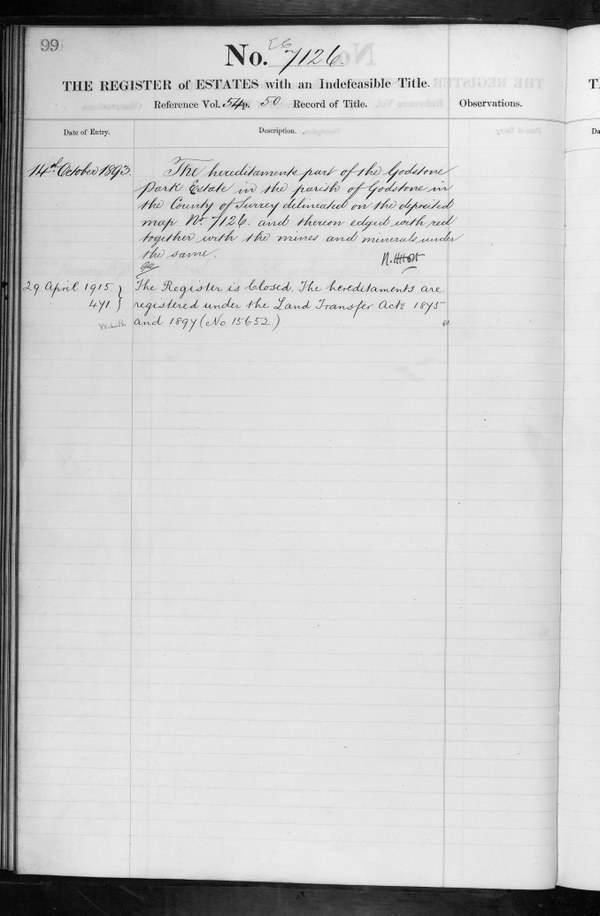 99
No. 7126.
THE REGISTER of ESTATES with an Indefeasible Title.
Reference Vol. 54 p. 50 Record of Title.
Observations.
Date of Entry.
Description.
14th October 1893.
The hereditaments part of the Godstone
Park Estate in the parish of Godstone in
the County of Surrey delineated on the deposited
map No. 7126. and thereon edged with red
together with the mines and minerals under
the same.
29 April 1915
471
The Register is Closed. The hereditaments are
registered under the Land Transfer Acts 1875
and 1897 (No 15652)